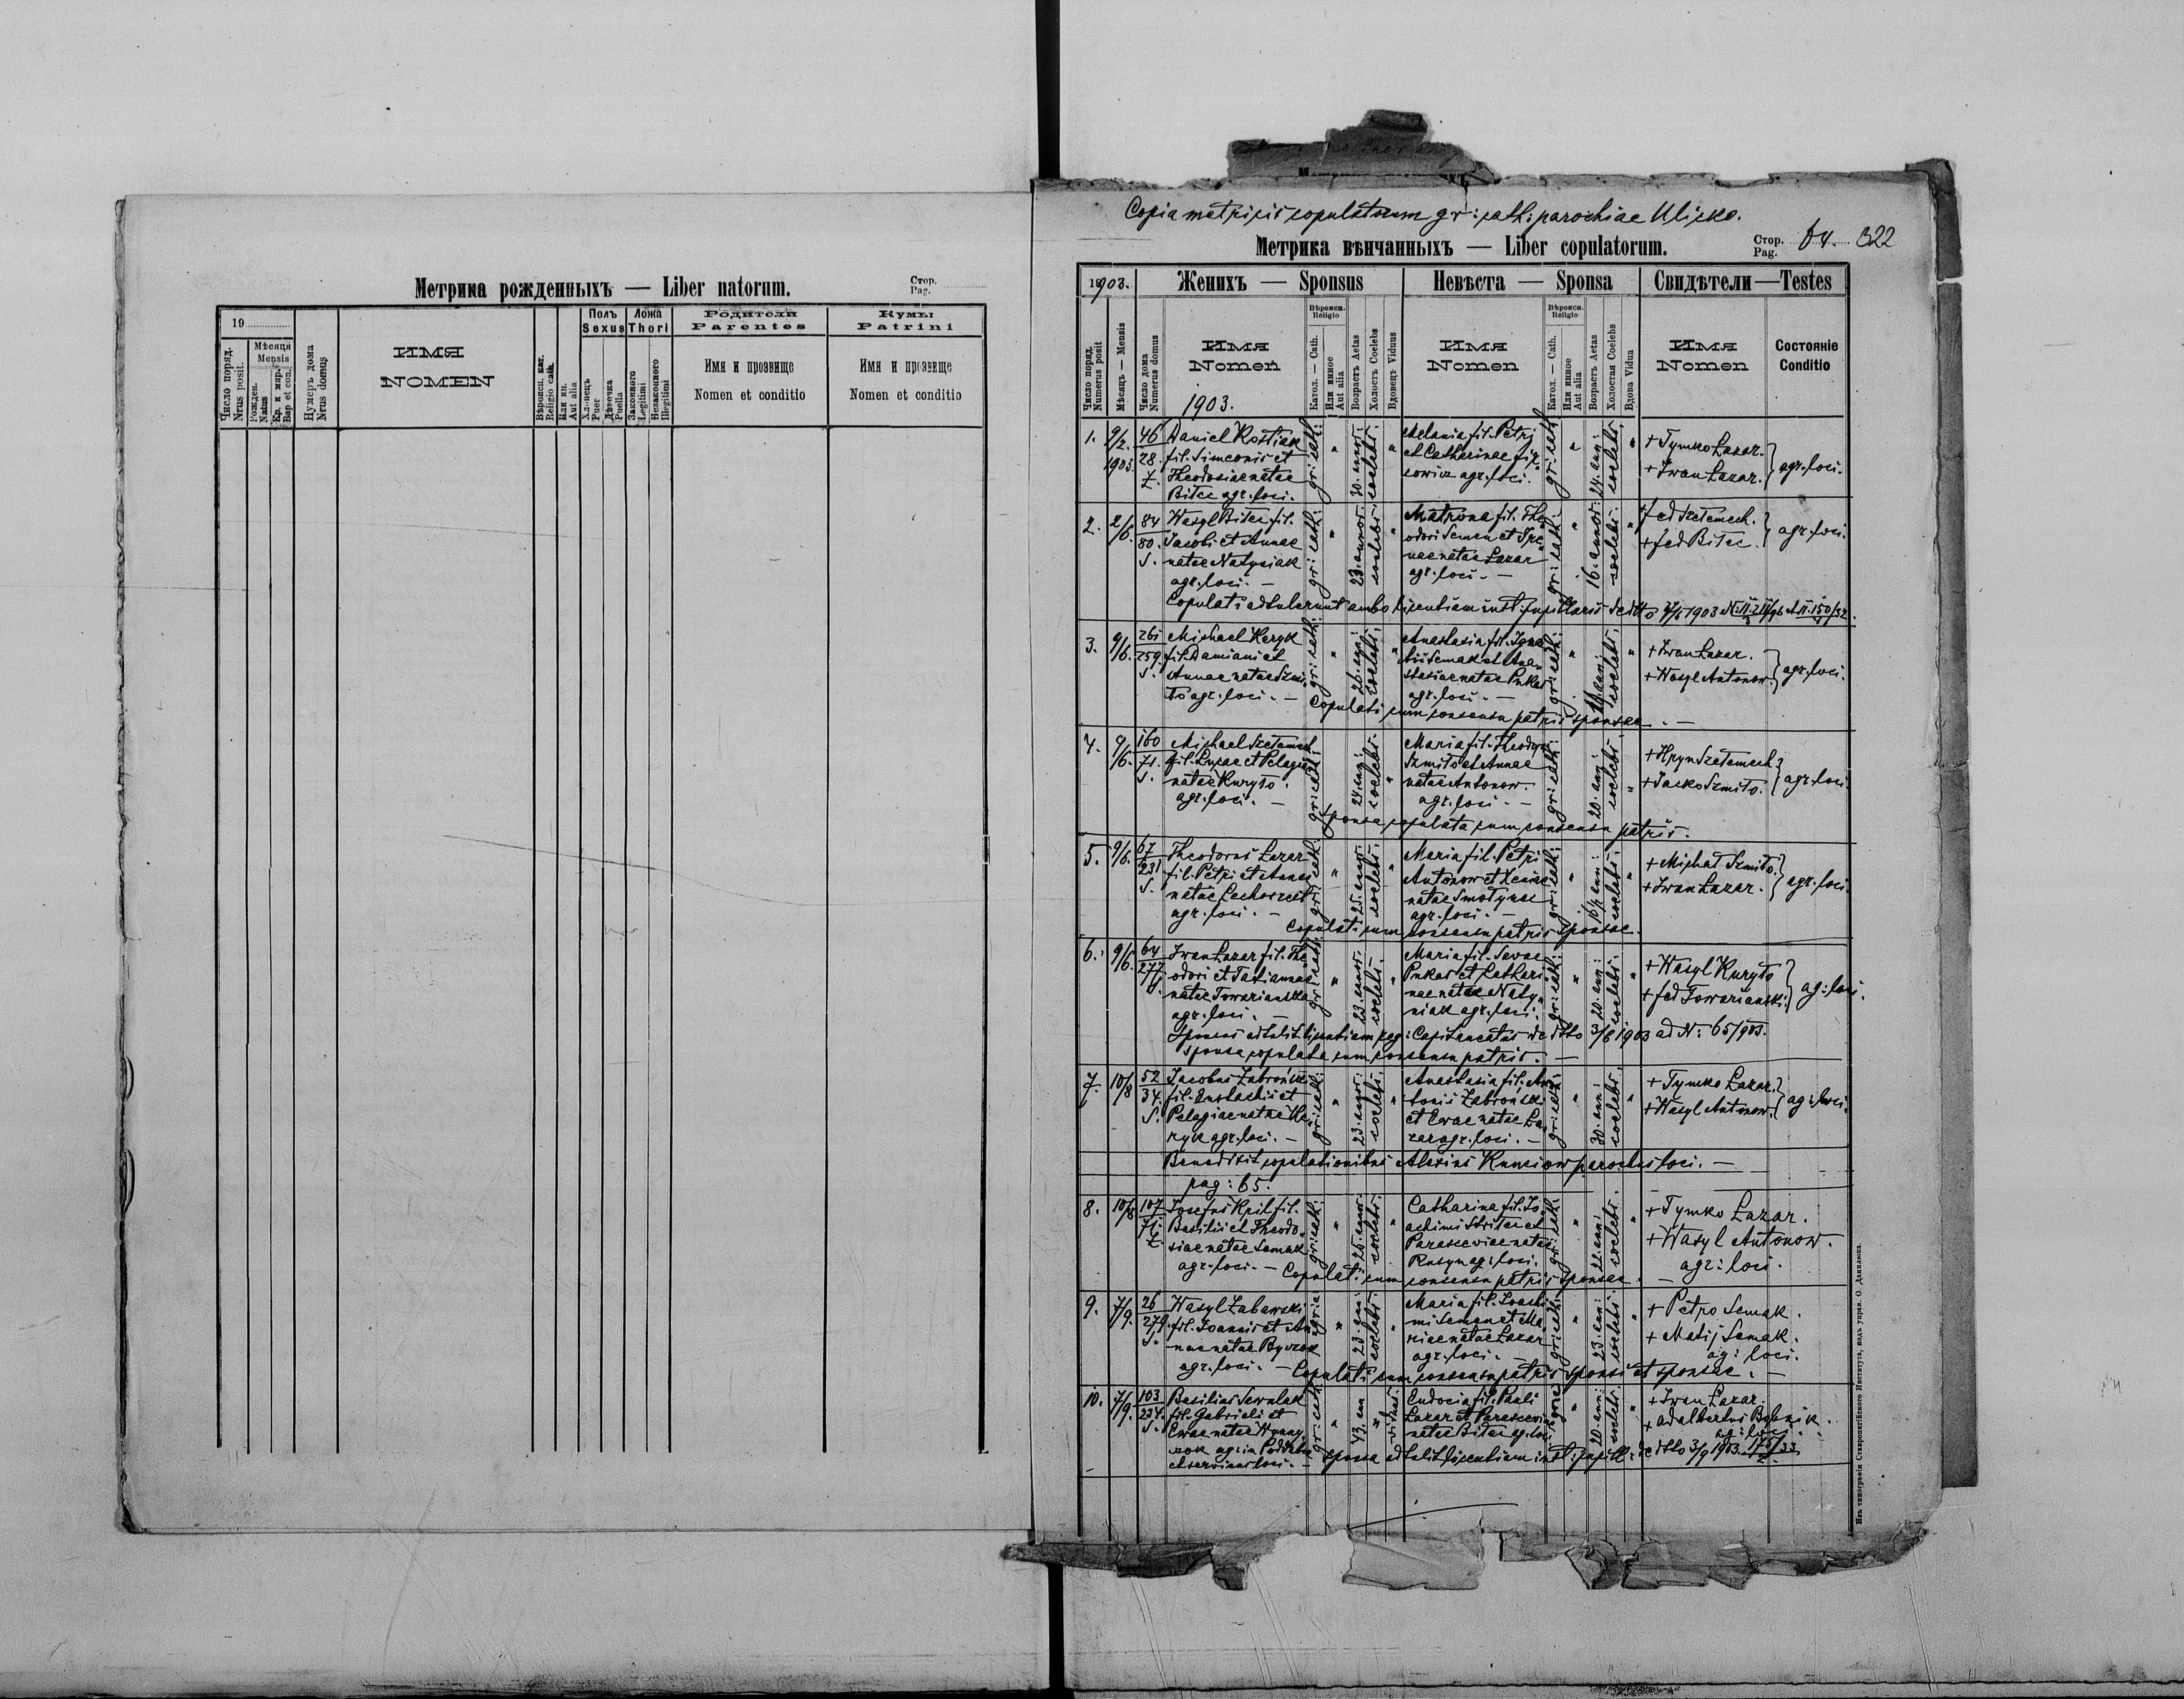 Метрика рожденныхъ — Liber natorum.
Стор.
Pag.
19
Число поряд.
Nrus posit.
Мѣсяця
Mensis
Рожден.
Natus
Кр. и мир.
Bap et con.
Нумеръ дома
Nrus domus
ИМЯ
NOMEN
Вѣроисп. кат.
Religio cath.
Или ин.
Aut alia
Полъ
Sexus
Хлопецъ
Puer
Дѣвочка
Puella
Ложа
Thori
Законного
Legitimi
Незаконного
Illegitimi
Родители
Parentes
Имя и прозвище
Nomen et conditio
Кумы
Patrini
Имя и прозвище
Nomen et conditio
Copia metricis copulatorum gr: cath: parochiae Ulicko.
Метрика вѣнчанныхъ — Liber copulatorum.
Стор.
Pag.
64. 322
1903.
Женихъ — Sponsus
Невѣста — Sponsa
Свидѣтели — Testes
Число поряд.
Numerus posit
Мѣсяцъ — Mensis
Число дома
Numerus domus
Имя
Nomen
1903.
Вѣроисп.
Religio
Катол. — Cath.
Или инное
Aut alia
Возрастъ Aetas
Холостъ Coelebs
Вдовецъ Viduus
Имя
Nomen
Вѣроисп.
Religio
Катол. — Cath.
Или инное
Aut alia
Возрастъ Aetas
Холостая Coelebs
Вдова Vidua
Имя
Nomen
Состояніе
Conditio
1. 9/2. 1903. 46 28. Ż.
Daniel Kostiak
fil. Simeonis et
Theodosiae natae
Bitec agr. loci.
gr: cath: " 30. annor. coelebs. "
Melania fil. Petri
et Catharinae
agr. loci.
gr: cath: " 24. ann: coelebs. "
+ Tymko Lazar.
+ Iwan Lazar.
agr. loci.
2. 2/6. 84 80. S.
Wasyl Bitec fil.
Jacobi et Annae
natae Natyniak
agr. loci. —
gr: cath: " 23. annor. coelebs. "
Matrona fil. The
odori Semen et Ire
nae natae Lazar
agr. loci. —
gr: cath: " 16. annor. coelebs. "
Fed Szełemech.
+ Fed Bitec.
agr. loci.
Copulati adtulerunt ambo licentiam inst: pupillaris de dtto 1903
3. 9/6. 261 259. S.
Michael Keryk
fil. Damiani et
Annae natae Szmi
to agr. loci. —
gr: cath: " 26. ann: coelebs. "
Anastasia fil. Igna
tii Semak et Ana
stasiae natae Pukas
agr. loci. —
gr: cath: " coelebs. "
+ Iwan Lazar.
+ Wasyl Antonow.
agr. loci.
Copulati cum consensu patris sponsae. —
4. 9/6. 160 71. S.
Michael Szełemech
fil. Lucae et Pelagiae
natae Kuryło.
agr. loci. —
gr: cath: 24. ann: coelebs. "
Maria fil. Theodori
Szmiło et Annae
natae Antonow.
agr. loci. —
gr: cath: 20. ann: coelebs. "
+ Hryn Szełemech
+ Jacko Szmiło.
agr. loci
Sponsa copulata cum consensu patris.
5. 9/6. 67 231 S.
Theodorus Lazar
fil. Petri et Annae
natae
agr. loci. —
gr: cath: " 25. annor. coelebs. "
Maria fil. Petri
Antonow et Xeniae
natae Smotynec
agr. loci. —
gr: cath: " 16½ ann: coelebs. "
+ Michał Szmiło.
+ Iwan Lazar.
agr. loci.
Copulati cum consensu patris sponsae.
6. 9/6. 64 277. S.
Iwan Lazar fil. The
odori et Tatiannae
natae Towarianska
agr. loci. —
gr: cath: " 23. annor. coelebs. "
Maria fil. Savae
Pukas et Cathari
nae natae Naty
niak agr. loci.
gr: cath: " 20. ann: coelebs. "
+ Wasyl Kuryło
+ Fed Towarianski.
ag: loci.
Sponsus adtulit licentiam Capitaneatus de dtto 3/6 1903 ad N: 65/903.
sponsa copulata cum consensu patris. —
7. 10/8 52 34. S.
Jacobus Zabroński
fil. Eustachii et
Pelagiae natae Ke
ryk agr. loci. —
gr: cath: " 23. annor. coelebs. "
Anastasia fil. An
tonii Zabroński
et Evae natae La
zar agr. loci. —
gr: cath: " 30. ann: coelebs. "
+ Tymko Lazar.
+ Wasyl Antonow.
ag: loci.
Benedixit copulationibus Alexius Kunciow parochus loci. —
pag: 65.
8. 10/8 107 71. Ż.
Josefus Kril fil.
Basilii et Theodo
siae natae Semak
agr. loci. —
gr: cath: " 25. annor. coelebs. "
Catharina fil. Jo
achimi Striter et
Parasceviae natae
Rusyn ag: loci.
gr: cath: " 22. ann: coelebs. "
+ Tymko Lazar.
+ Wasyl Antonow.
agr: loci.
Copulati cum consensu patris sponsae. —
9. 7/9. 26 279. S.
Wasyl Zabawski
fil. Joannis et An
nae natae
agr. loci. —
" 23. ann: coelebs. "
Maria fil. Joachi
mi Semen et Ma
riae natae Lazar
agr. loci. —
gr: cath: " 23. ann: coelebs. "
+ Petro Semak.
+ Matij Semak.
ag: loci.
Copulati cum consensu patris sponsi et sponsae. —
10. 7/9. 103 234. S.
Basilius
fil. Gabrieli et
Evae natae
agr. in
et servi loci. —
gr: cath: " 43. ann " viduus.
Eudocia fil. Pauli
Lazar et Parasceviae
natae Bitec ag. loci
" 20 ann: coelebs "
+ Iwan Lazar.
+ Adalbertus Bobnik.
ag: loci.
Sponsa adtulit licentiam inst: pupill: de dtto 3/9 1903.
Изъ типографіи Ставропигійского Института, подъ управ. О. Данилюка.